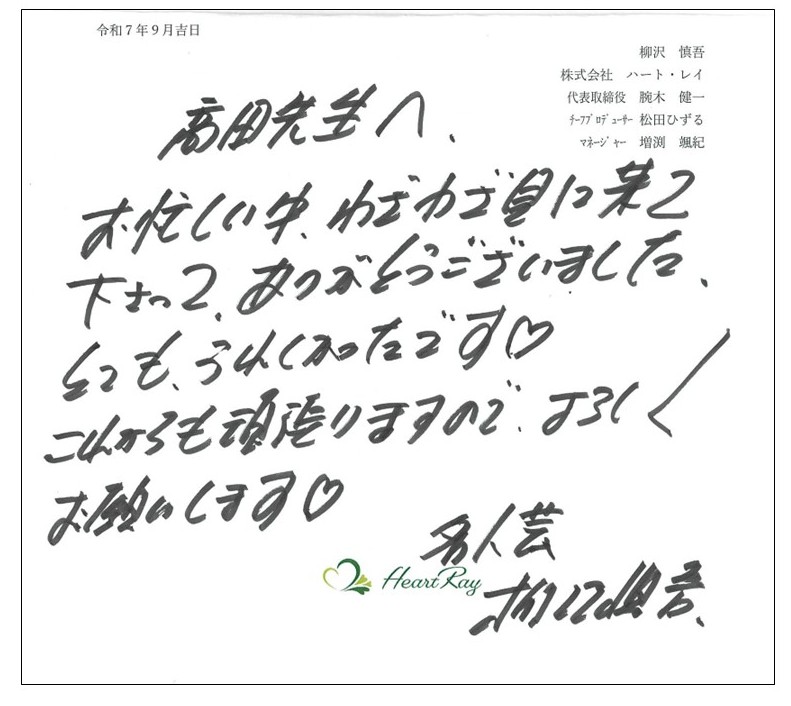 令和7年9月吉日
柳沢 慎吾
株式会社 ハート・レイ
代表取締役 腕木 健一
ﾁｰﾌﾌﾟﾛﾃﾞｭｰｻｰ 松田ひずる
ﾏﾈｰｼﾞｬｰ 増渕 颯紀
高田先生へ、
お忙しい中、わざわざ見に来て
下さって、ありがとうございました、
とっても、うれしかったです♡
これからも頑張りますので、よろしく
お願いします♡
名人芸
Heart Ray
柳沢慎吾、